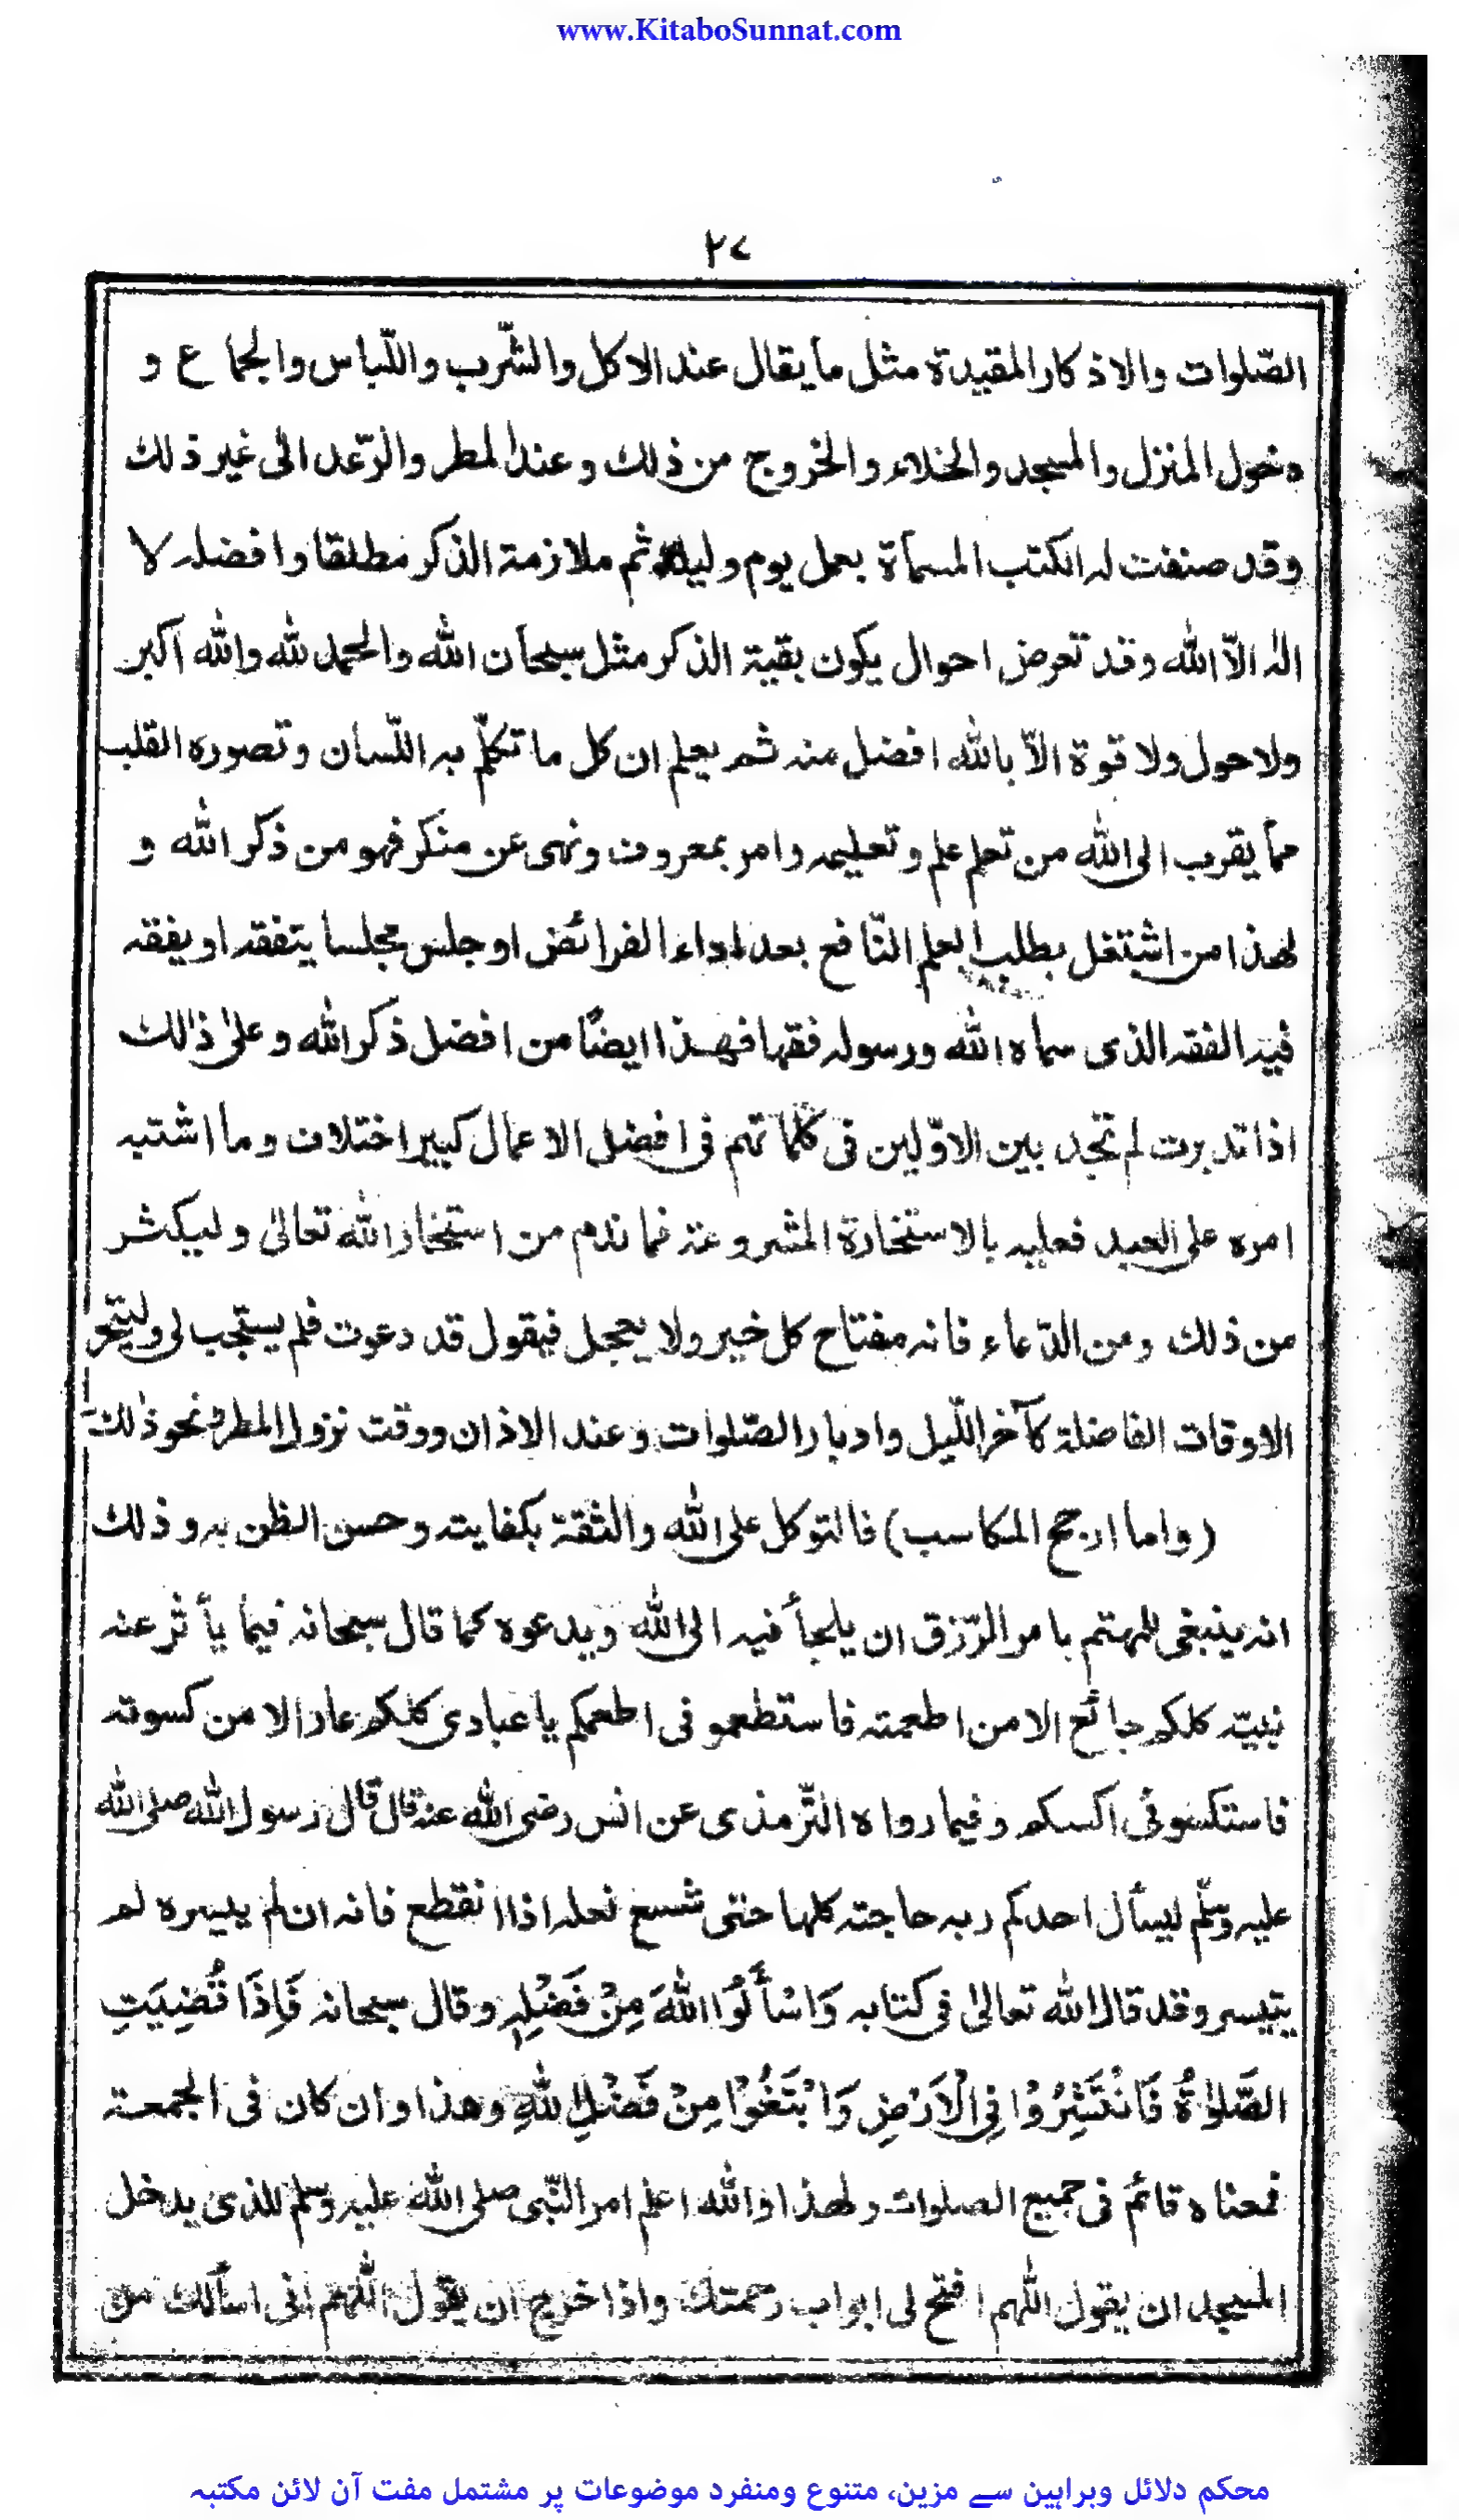 www.KitaboSunnat.com
٢٧
الصّلوات والاذكار المقيدة مثل ما يقال عند الاكل والشّرب واللّباس والجماع و
دخول المنزل والمسجد والخلاء والخروج من ذلك وعند المطر والرّعد الى غير ذلك
وقد صنفت له الكتب المسمأة بعمل يوم وليلة ثم ملازمة الذكر مطلقا وافضله لا
اله الاّ الله وقد تعرض احوال يكون بقية الذكر مثل سبحان الله والحمد لله والله اكبر
ولا حول ولا قوة الاّ بالله افضل منه ثم يعلم ان كل ما تكلّم به اللّسان وتصوره القلب
مما يقرب الى الله من تعلم علم وتعليمه وامر بمعروف ونهى عن منكر فهو من ذكر الله و
لهذا من اشتغل بطلب العلم النّافع بعد اداء الفرائض او جلس مجلسا يتفقه او يفقه
فيه الفقه الذى سماه الله ورسوله فقها فهذا ايضًا من افضل ذكر الله وعلىٰ ذٰلك
اذا تدبرت لم تجد بين الاوّلين فى كلماتهم فى افضل الاعمال كبير اختلاف وما اشتبه
امره على العبد فعليه بالاستخارة المشروعة فما ندم من استخار الله تعالىٰ وليكثر
من ذلك ومن الدّعاء فانه مفتاح كل خير ولا يعجل فيقول قد دعوت فلم يستجب لى وليتحر
الاوقات الفاضلة كآخر اللّيل وادبار الصّلوات وعند الاذان ووقت نزول المطر ونحو ذٰلك
(واما ارجح المكاسب) فالتوكل على الله والثقة بكفايته وحسن الظن به وذلك
انه ينبغى للمهتم بامر الرّزق ان يلجأ فيه الى الله ويدعوه كما قال سبحانه فيما يأثر عنه
نبيّه كلكم جائع الا من اطعمته فاستطعمونى اطعمكم يا عبادى كلكم عار الا من كسوته
فاستكسونى اكسكم وفيما رواه التّرمذى عن انس رضى الله عنه قال قال رسول الله صلى الله
عليه وسلّم ليسأل احدكم ربه حاجته كلها حتى شسع نعله اذا انقطع فانه ان لم ييسره لم
يتيسر وقد قال الله تعالىٰ فى كتابه وَاسْأَلُوا اللهَ مِنْ فَضْلِهٖ وقال سبحانه فَاِذَا قُضِيَتِ
الصَّلوٰةُ فَانْتَشِرُوْا فِى الْاَرْضِ وَابْتَغُوْا مِنْ فَضْلِ اللهِ وهذا وان كان فى الجمعة
فمعناه قائم فى جميع الصلوات ولهذا والله اعلم امر النّبى صلى الله عليه وسلم للذى يدخل
المسجد ان يقول اللّٰهم افتح لى ابواب رحمتك واذا خرج ان يقول اللّٰهم انى اسألك من
محکم دلائل وبراہین سے مزین، متنوع ومنفرد موضوعات پر مشتمل مفت آن لائن مکتبہ